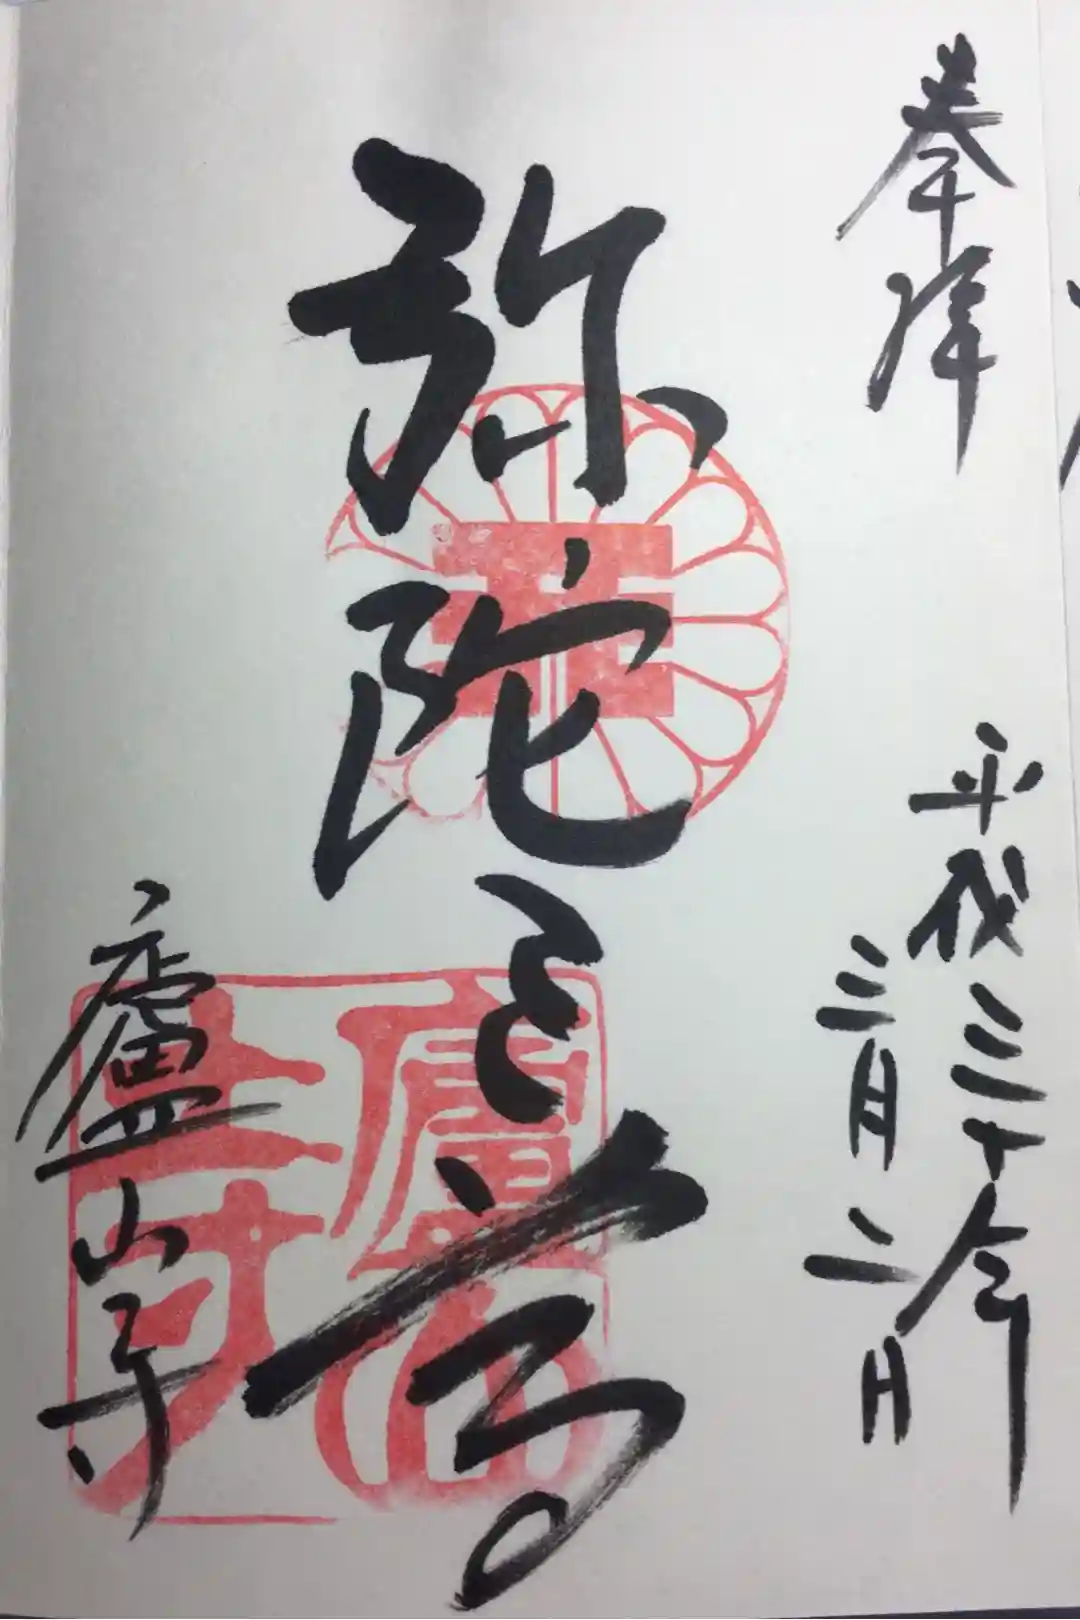 奉拝
平成三十年
三月二日
弥陀三尊
廬山寺
廬山寺